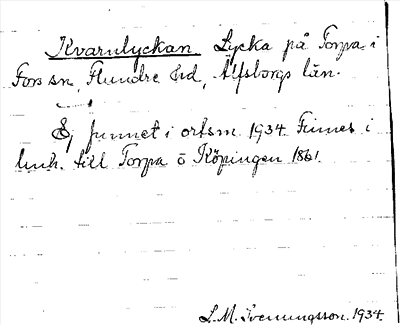 Kvarnlyckan Lycka på Torpa i
Fors sn, Flundre hd, Älfsborgs län.
Ej funnet i ortsm. 1934. Finnes i
lmh. till Torpa o Köpingen 1861.
L.M. Svenungsson. 1934.